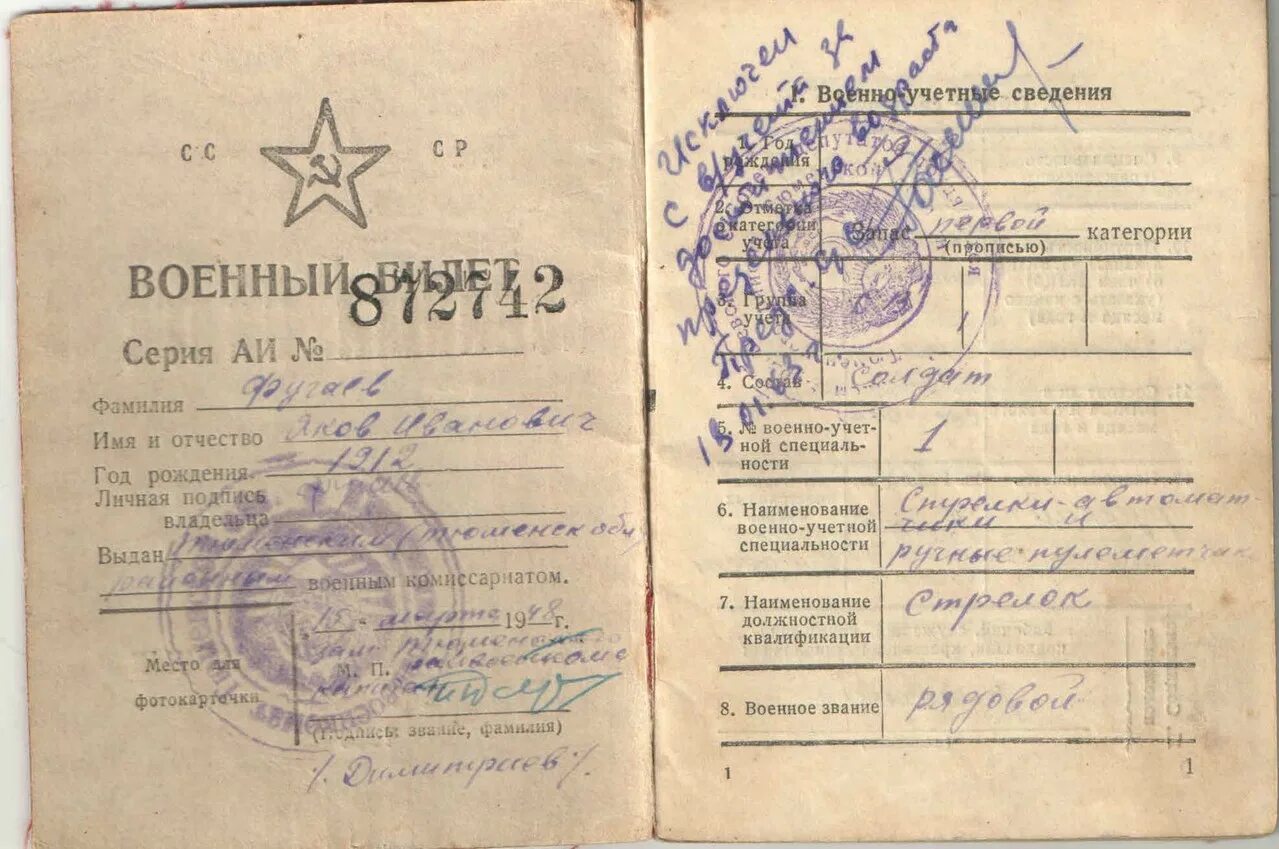 СС СР
ВОЕННЫЙ БИЛЕТ
872742
Серия АИ №
Фамилия Фугаев
Имя и отчество Яков Иванович
Год рождения 1912
Личная подпись
владельца
Выдан Тюменским (тюменск обл)
районным военным комиссариатом.
15 марта 1948 г.
зам
Место для
фотокарточки
М. П.
(Подпись: звание, фамилия)
/. Димитриев /.
Исключен
с в/учета за
достижением
предельного возраста
18.01.63
I. Военно-учетные сведения
1. Год
рождения
2. Отметка
о категории
учета
Запас первой категории
(прописью)
3. Группа
учета
1
4. Состав Солдат
5. № военно-учет-
ной специаль-
ности
1
6. Наименование
военно-учетной
специальности
Стрелки-автомат-
чики и
ручные пулеметчик
7. Наименование
должностной
квалификации
Стрелок
8. Военное звание рядовой
1
1